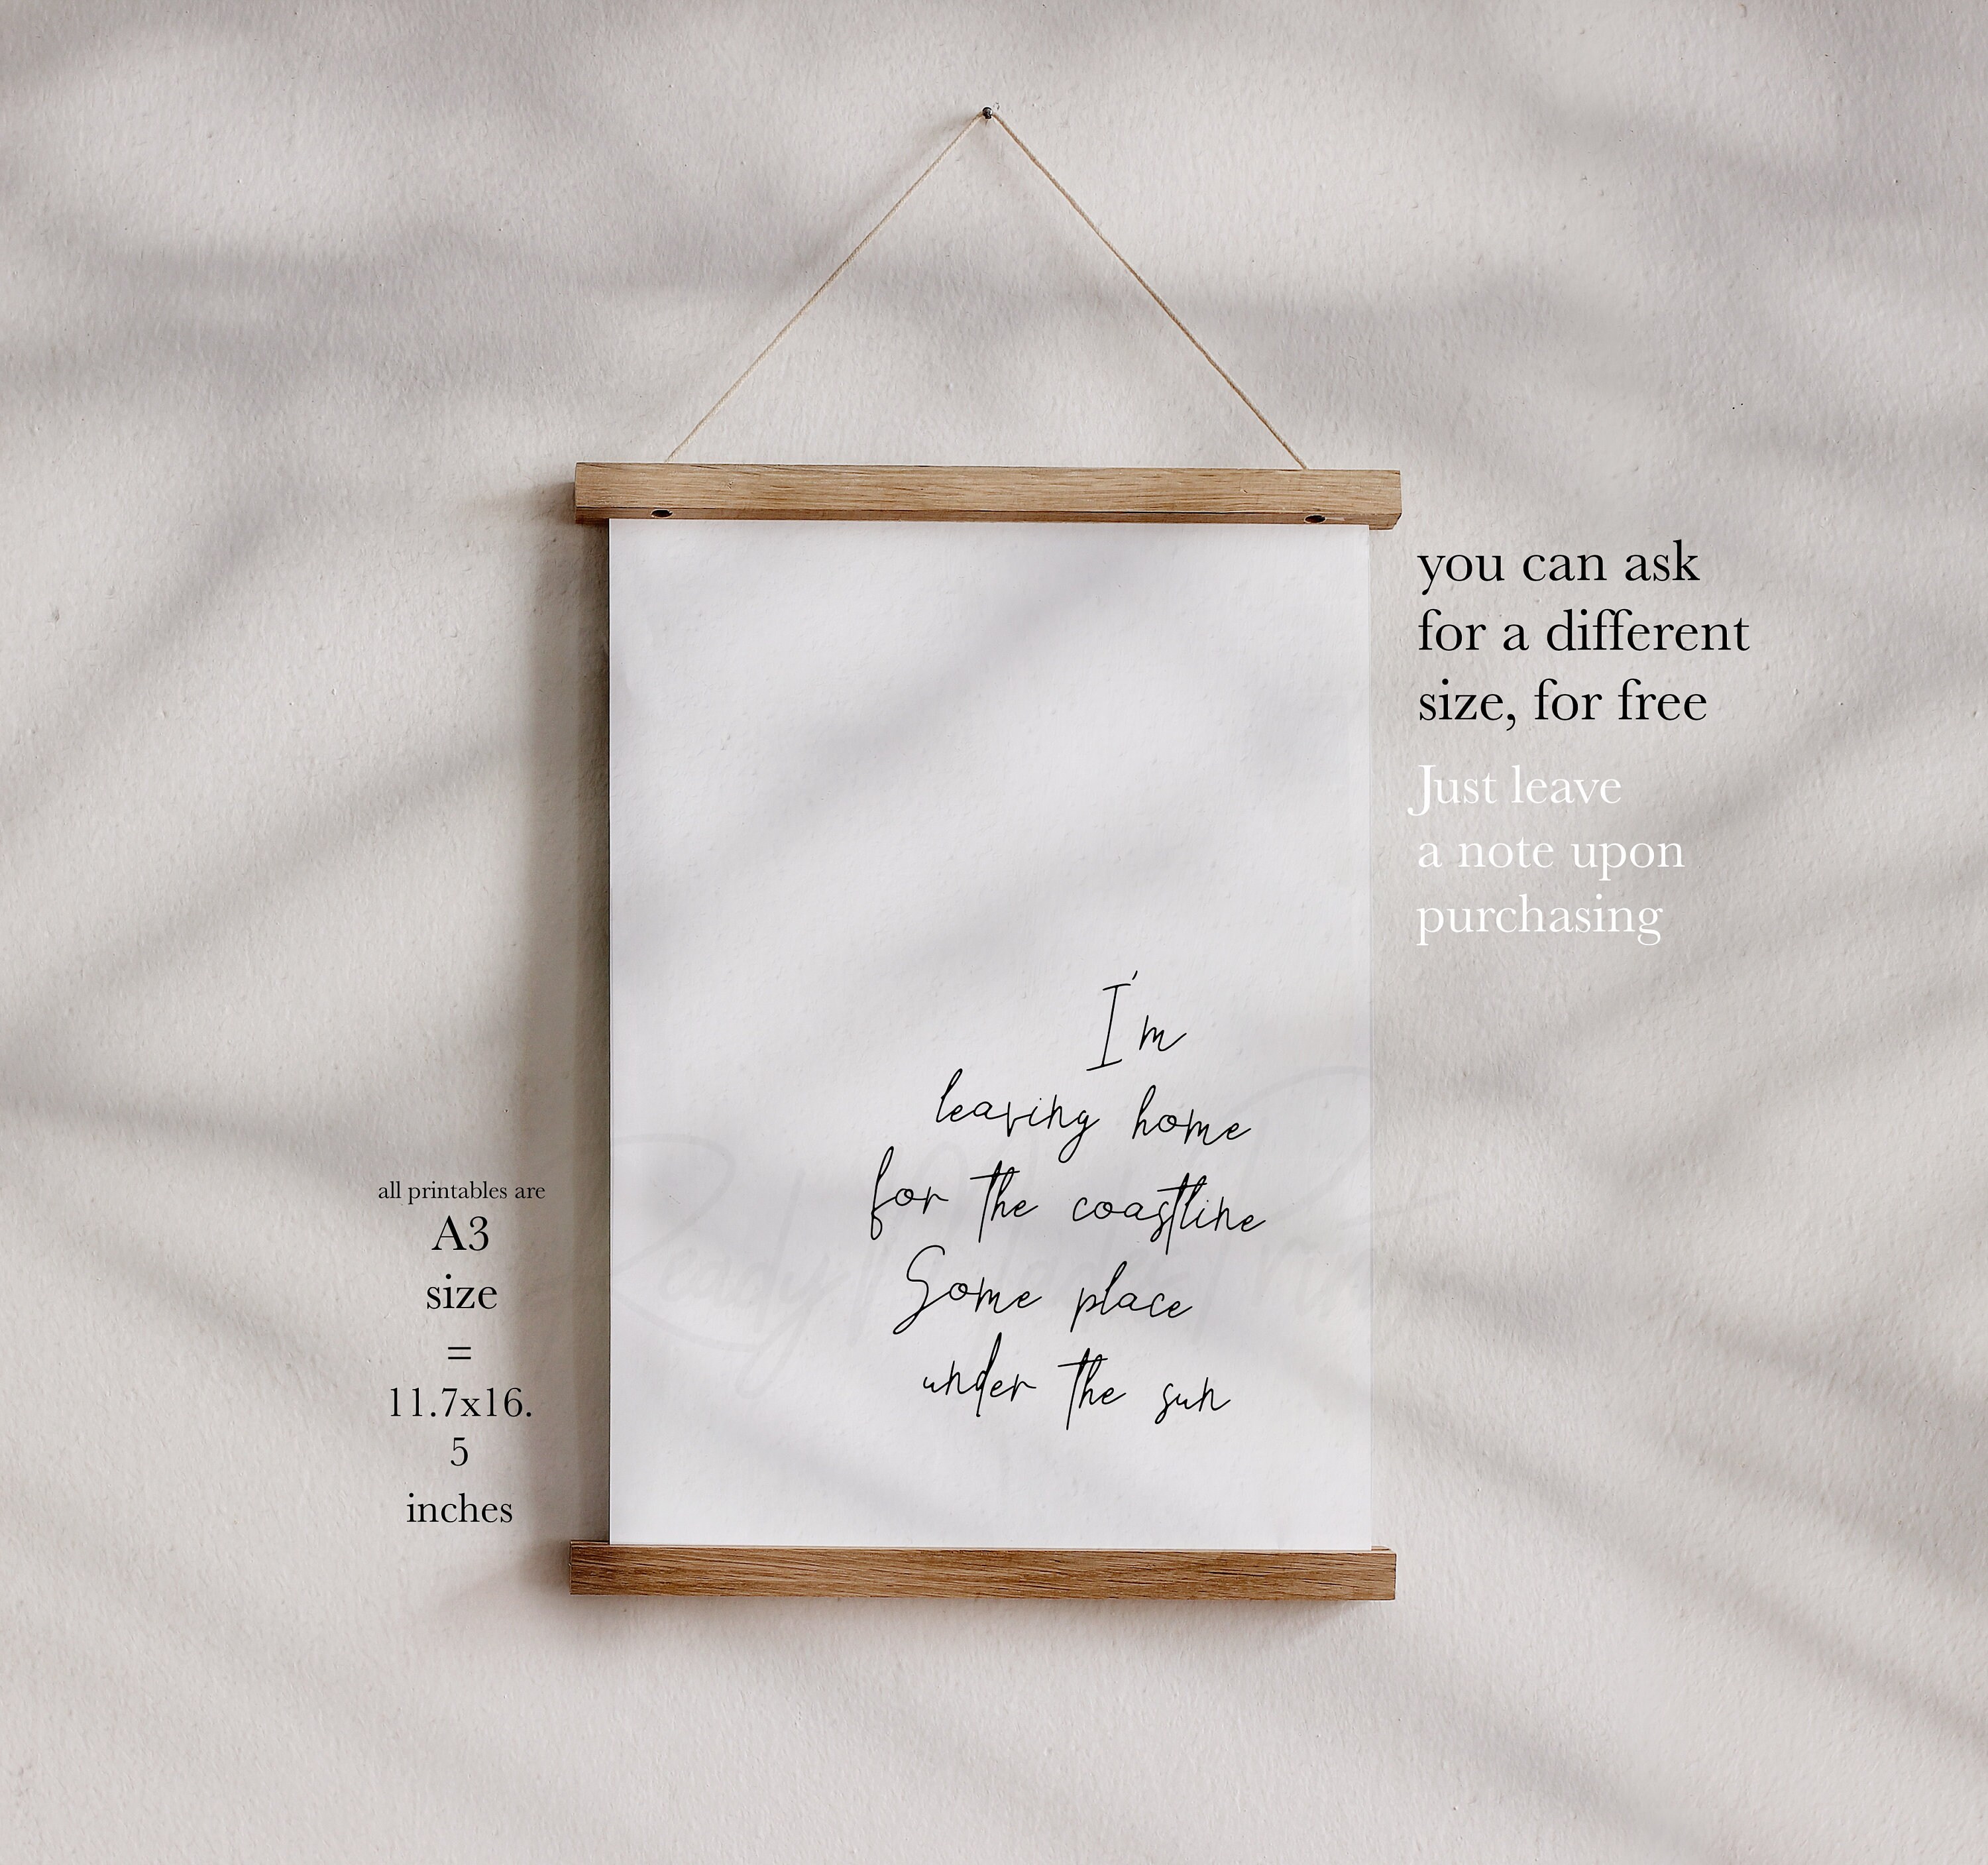 you can ask
for a different
size, for free
Just leave
a note upon
purchasing
I'm
leaving home
for the coastline
Some place
under the sun
all printables are
A3
size
=
11.7x16.
5
inches